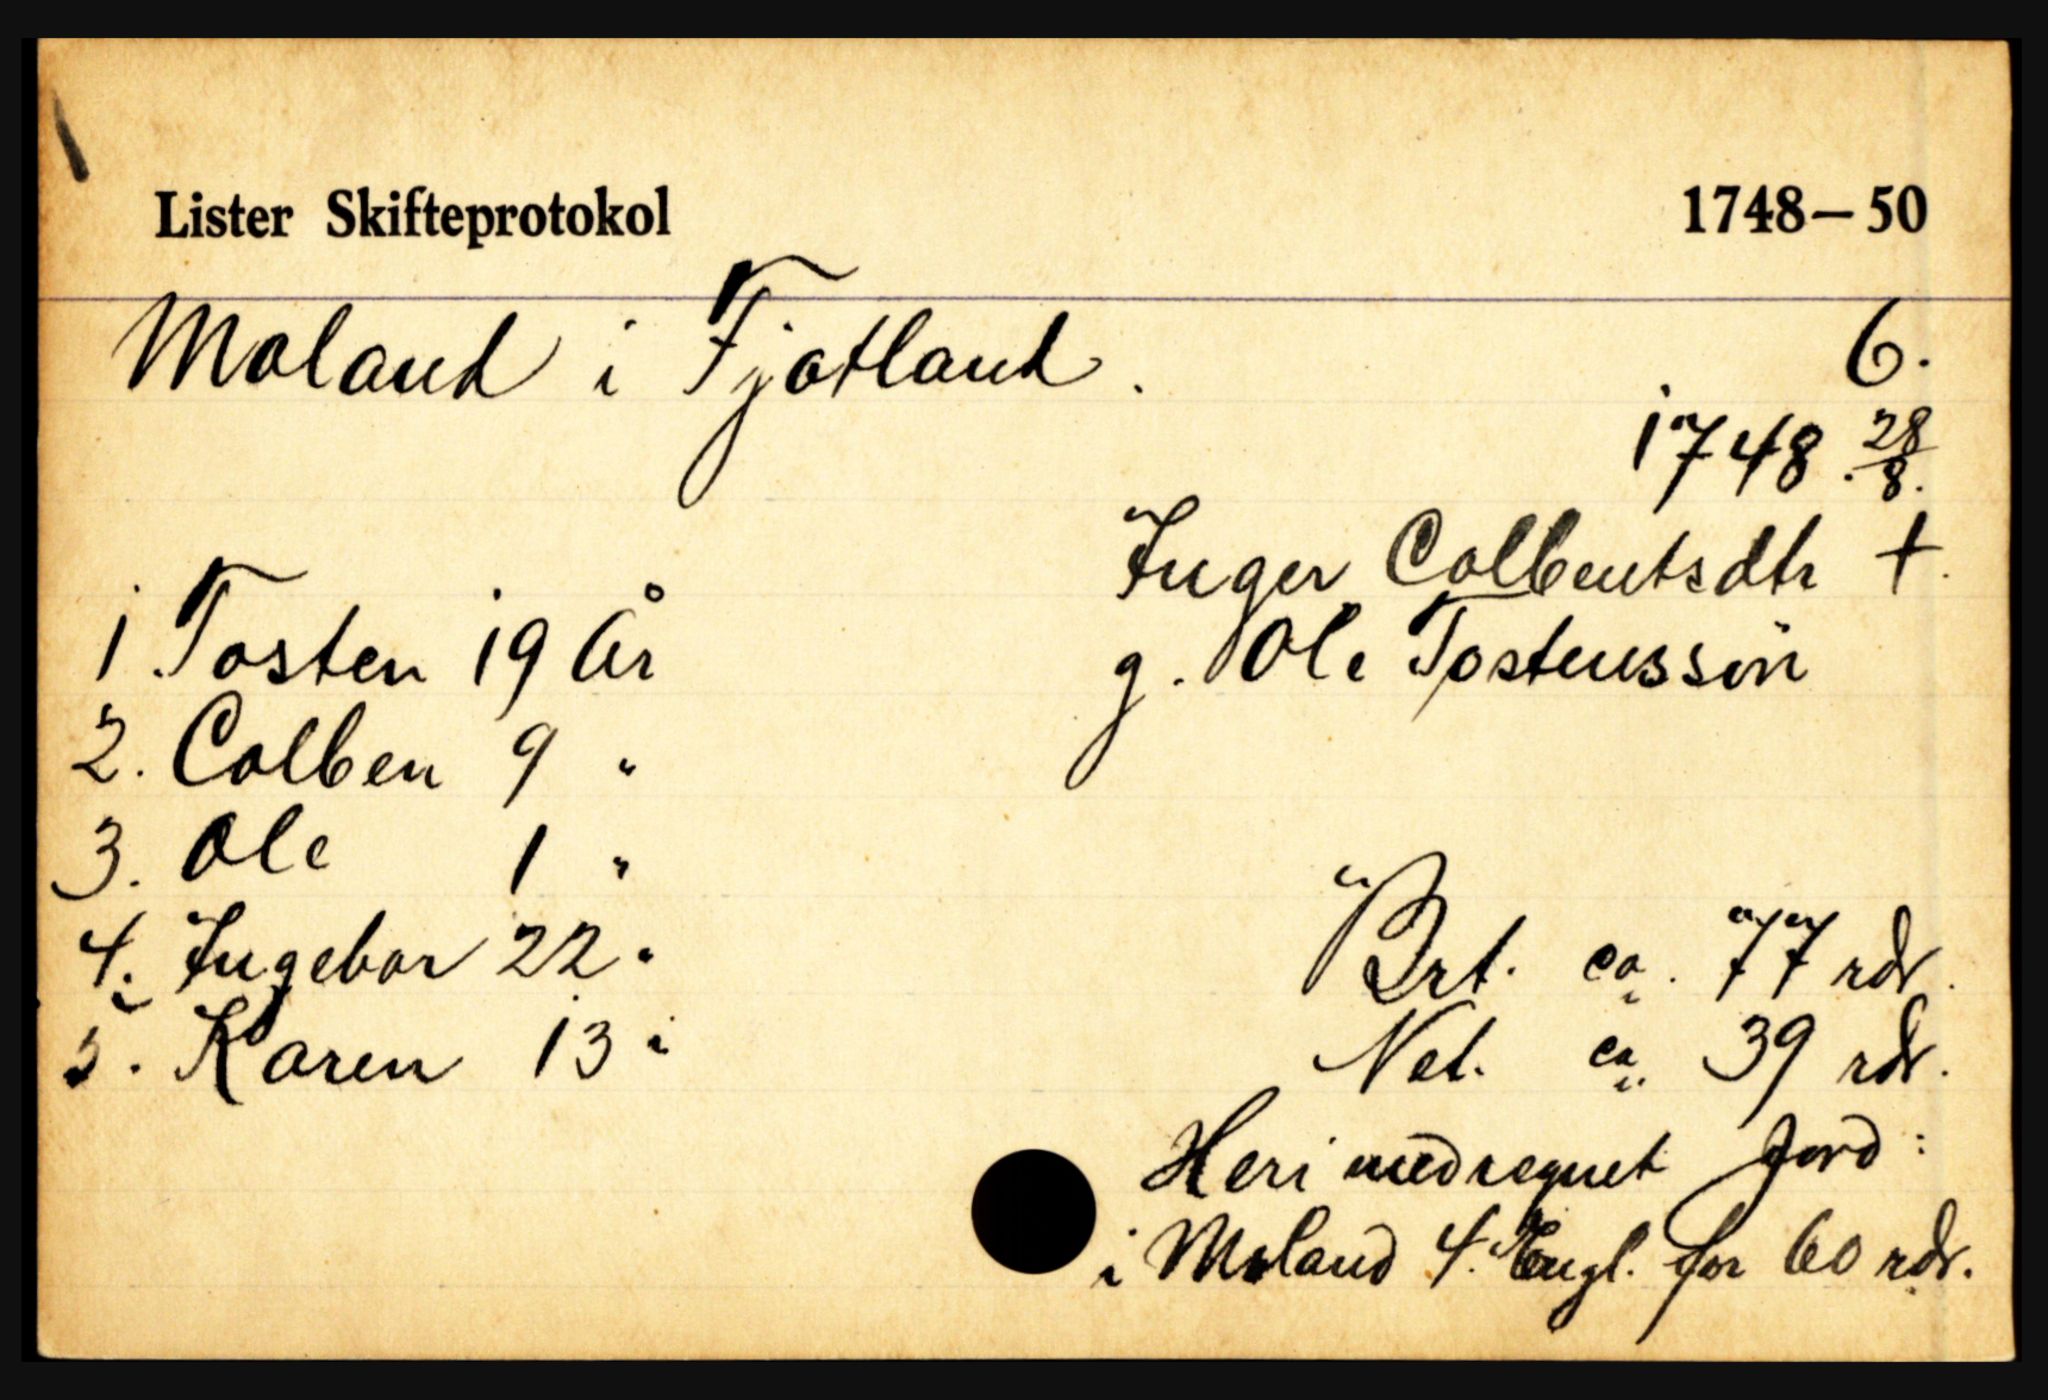 Lister Skifteprotokol 1748–50
Moland i Fjotland. 6.
1748. 28/8.
Inger Colbentsdtr +.
g. Ole Tostenssön
1. Tosten 19 år
2. Colben 9 "
3. Ole 1 "
4. Ingebor 22 "
5. Karen 13 "
Brt. ca. 77 rdr.
Net. ca. 39 rdr.
Heri medregnet Jord:
i Moland 4. Engl. for 60 rdr.